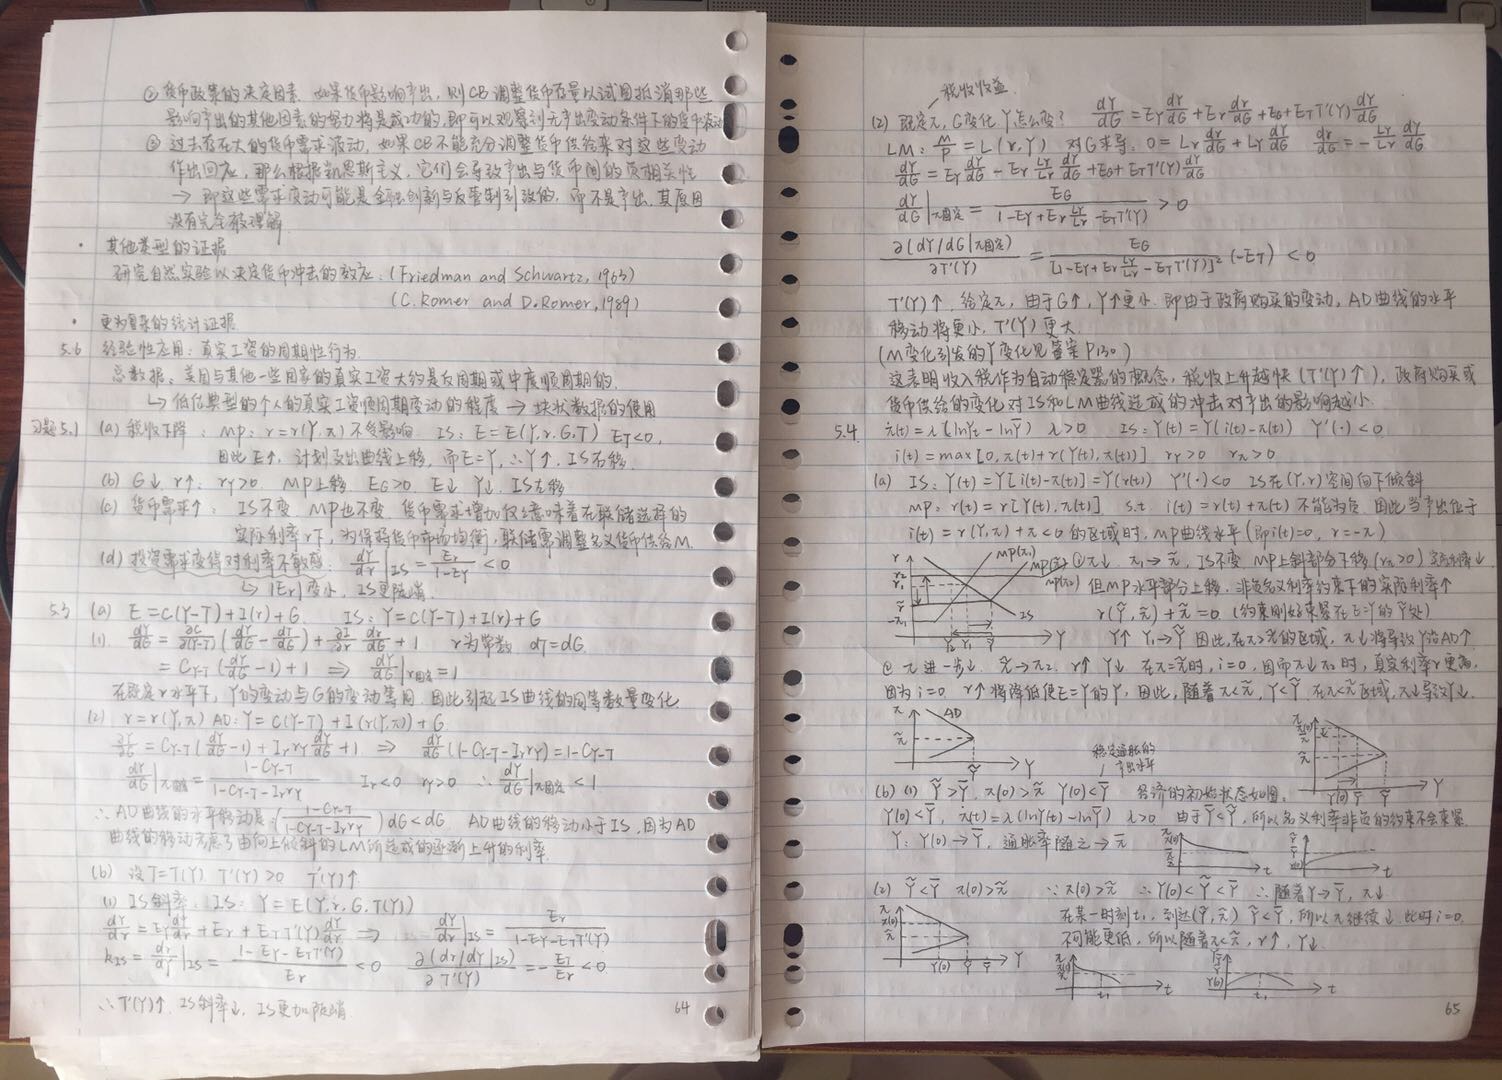 ② 货币政策的决定因素. 如果货币影响产出, 则CB调整货币存量以试图抵消那些
影响产出的其他因素的努力将是成功的, 即可以观察到无产出变动条件下的货币波动
③ 过去存在大的货币需求波动, 如果CB不能充分调整货币供给来对这些变动
作出回应, 那么根据凯恩斯主义, 它们会导致产出与货币间的负相关性
→ 即这些需求变动可能是金融创新与反管制引致的, 而不是产出, 其原因
没有完全被理解.
· 其他类型的证据
研究自然实验以决定货币冲击的效应: (Friedman and Schwartz, 1963)
(C. Romer and D. Romer, 1989)
· 更为复杂的统计证据
5.6 经验性应用: 真实工资的周期性行为
总数据: 美国与其他一些国家的真实工资大约是反周期或中度顺周期的.
↳ 低估典型的个人的真实工资顺周期变动的程度 → 块状数据的使用
习题5.1 (a) 税收下降: MP: r=r(Y,π) 不受影响. IS: E=E(Y,r,G,T) E_T<0,
因此E↑, 计划支出曲线上移, 而E=Y, ∴Y↑, IS右移.
(b) G↓ r↑: r_Y>0. MP上移 E_G>0. E↓ Y↓. IS左移
(c) 货币需求↑: IS不变. MP也不变. 货币需求增加仅意味着在联储选择的
实际利率r下, 为保持货币市场均衡, 联储需调整名义货币供给M.
(d) 投资需求变得对利率不敏感: dY/dr|IS = E_r/(1-E_Y) < 0
↳ |E_r|变小, IS更陡峭.
5.3 (a) E=C(Y-T)+I(r)+G IS: Y=C(Y-T)+I(r)+G
(1). dY/dG = ∂C/∂(Y-T) (dY/dG - dT/dG) + ∂I/∂r dr/dG + 1 r为常数 dT=dG.
= C_{Y-T}(dY/dG - 1)+1 ⇒ dY/dG|r固定 = 1
在既定r水平下, Y的变动与G的变动等同. 因此引起IS曲线的同等数量变化
(2) r=r(Y,π) AD: Y=C(Y-T)+I(r(Y,π))+G
∂Y/∂G = C_{Y-T}(dY/dG - 1)+I_r r_Y dY/dG + 1 ⇒ dY/dG (1-C_{Y-T}-I_r r_Y)=1-C_{Y-T}
dY/dG|π固定 = (1-C_{Y-T})/(1-C_{Y-T}-I_r r_Y) I_r<0 r_Y>0 ∴ dY/dG|π固定 < 1
∴ AD曲线的水平移动是: ((1-C_{Y-T})/(1-C_{Y-T}-I_r r_Y)) dG < dG. AD曲线的移动小于IS, 因为AD
曲线的移动考虑了由向上倾斜的LM所造成的逐渐上升的利率.
(b) 设T=T(Y) T'(Y)>0 T'(Y)↑
(1) IS斜率: IS: Y=E(Y,r,G,T(Y))
dY/dr = E_Y dY/dr + E_r + E_T T'(Y) dY/dr ⇒ dY/dr|IS = E_r/(1-E_Y-E_T T'(Y))
k_IS = dr/dY|IS = (1-E_Y-E_T T'(Y))/E_r < 0 ∂(dr/dY|IS)/∂T'(Y) = -E_T/E_r < 0
∴ T'(Y)↑. IS斜率↓, IS更加陡峭.
64
税收收益
(2) 既定π, G变化 Y怎么变? dY/dG = E_Y dY/dG + E_r dr/dG + E_G + E_T T'(Y) dY/dG
LM: M/P = L(r,Y) 对G求导: 0 = L_r dr/dG + L_Y dY/dG dr/dG = -L_Y/L_r dY/dG
dY/dG = E_Y dY/dG - E_r L_Y/L_r dY/dG + E_G + E_T T'(Y) dY/dG
dY/dG|π固定 = E_G/(1-E_Y+E_r L_Y/L_r -E_T T'(Y)) > 0
∂(dY/dG|π固定)/∂T'(Y) = E_G/[1-E_Y+E_r L_Y/L_r -E_T T'(Y)]² (-E_T) < 0
T'(Y)↑. 给定π, 由于G↑, Y↑更小. 即由于政府购买的变动, AD曲线的水平
移动将更小, T'(Y)更大.
(M变化引发的Y变化见答案P130)
这表明收入税作为自动稳定器的概念, 税收上升越快(T'(Y)↑), 政府购买或
货币供给的变化对IS和LM曲线造成的冲击对产出的影响越小.
5.4. π̇(t)=λ(lnYt-lnȲ) λ>0 IS: Y(t)=Y(i(t)-π(t)) Y'(·)<0
i(t)=max[0, π(t)+r(Y(t),π(t))] r_Y>0 r_π>0
(a) IS: Y(t)=Y[i(t)-π(t)]=Y(r(t)) Y'(·)<0 IS在(Y,r)空间向下倾斜
MP: r(t)=r[Y(t),π(t)] s.t. i(t)=r(t)+π(t) 不能为负 因此当产出位于
i(t)=r(Y,π)+π<0的区域时, MP曲线水平(即i(t)=0, r=-π)
r MP(π₁) IS Y
① π↓ π₁→π̃, IS不变 MP上斜部分下移(r_π>0) 实际利率↓
但MP水平部分上移. 非负名义利率约束下的实际利率↑
r(Ỹ,π̃)+π̃=0. (约束刚好束紧在E=Y的Ỹ处)
Y↑ Y₁→Ỹ 因此, 在π>π̃的区域, π↓将导致Y沿AD↑
② π进一步↓ π̃→π₂ r↑ Y↓ 在π=π̃时, i=0, 因而π↓π₂时, 真实利率r更高.
因为i=0. r↑将降低使E=Y的Y, 因此, 随着π<π̃, Y<Ỹ. 在π<π̃区域, π↓导致Y↓.
π AD π̃ Ỹ Y
稳定通胀的
产出水平
π π(0) π̃ Y(0) Ȳ Ỹ Y
(b) (1) Ỹ>Ȳ. π(0)>π̃ Y(0)<Ȳ 经济的初始状态如图.
Y(0)<Ȳ, π̇(t)=λ(lnY(t)-lnȲ) λ>0 由于Ȳ<Ỹ, 所以名义利率非负的约束不会束紧.
Y: Y(0)→Ȳ, 通胀率随之→π̄
π(0) t Ȳ t
(2) Ỹ<Ȳ π(0)>π̃ ∵π(0)>π̃ ∴Y(0)<Ỹ<Ȳ ∴随着Y→Ȳ, π↓
在某一时刻t₁, 到达(Ỹ,π̃) Ỹ<Ȳ, 所以π继续↓ 此时i=0.
不可能更低, 所以随着π<π̃, r↑, Y↓.
π π(0) π̃ Y(0) Ỹ Ȳ Y
t₁ t Y(0) t₁ t
65